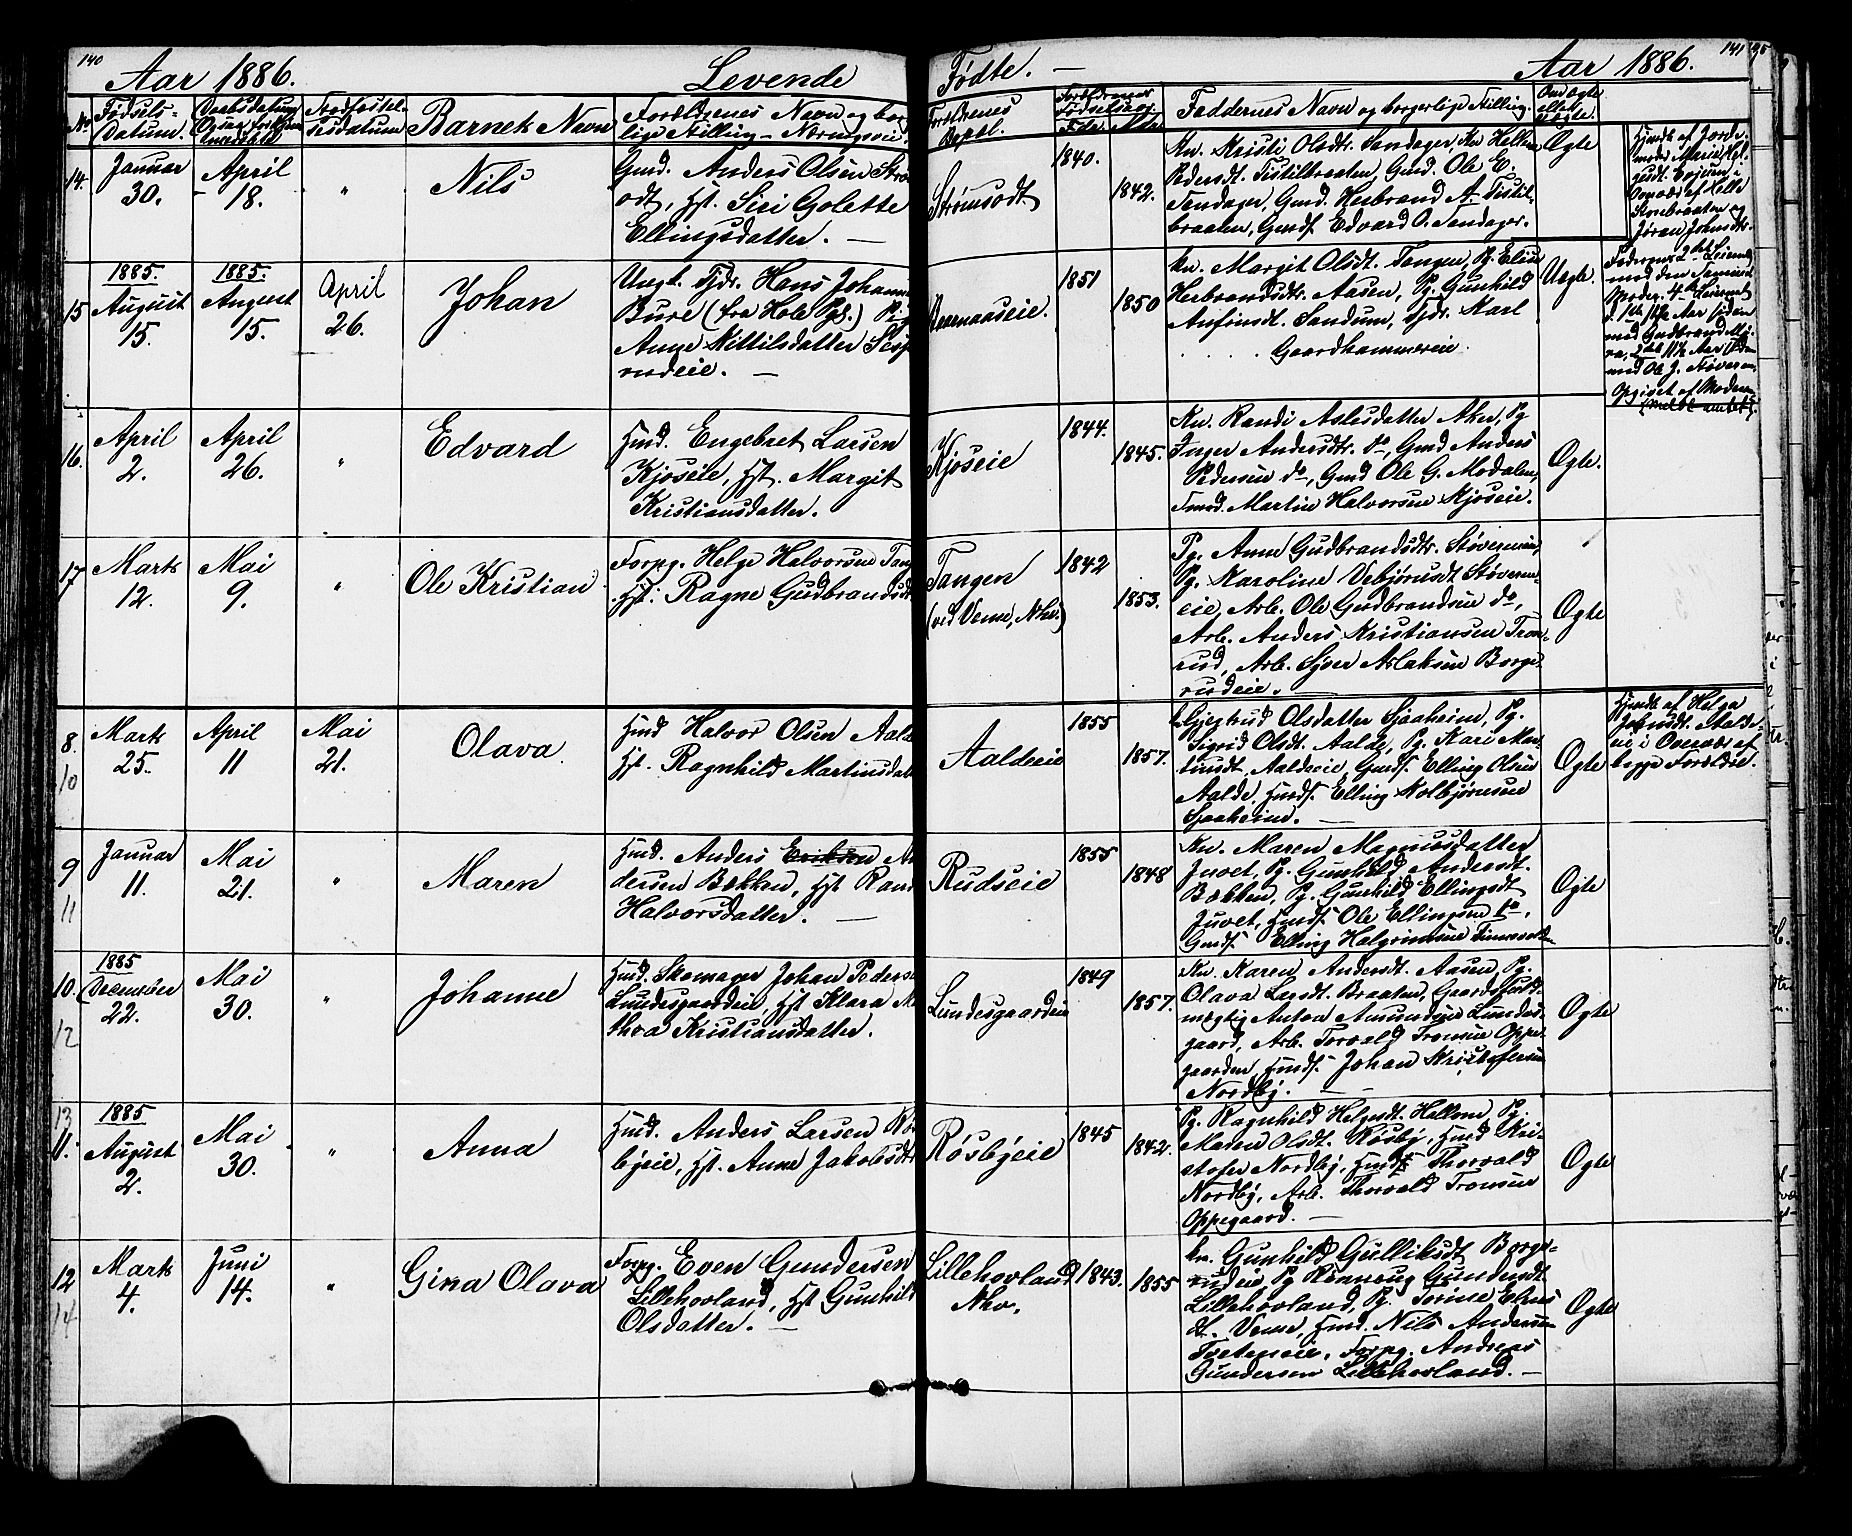 140
Aar 1886.
Levende
Fødte. —
Aar 1886.
141
No.
Fødsels-
Datum.
Daabsdatum
Stadfæstel-
sesdatum
Barnets Navn
Forældrenes Navn og bor-
lige Stilling – Næringsvei.
Forældrenes
Bopæl.
Forældrenes
Fødselsaar
Fdr. Mdr.
Faddernes Navn og borgerlige Stilling.
Om Ægte
eller
Uægte.
14.
Januar
30.
April
18.
"
Nils
Gmd. Anders Olsen Strøms-
odt, Hst. Siri Golette
Ellingsdatter. —
Strømsodt
1840.
1842.
Kn. Kristi Olsdtr. Sandager, Kn Hellene
Pedersdt. Tistilbraaten, Gmd. Ole E.
Sandager, Gmd. Herbrand A. Tistil-
braaten, Gmdf. Edvard O. Sandager.
Ægte
Hjmdt af Jorde-
moder Marie
Overvær af Helle
Jøran Johnsdtr.
15
1885.
August
15.
1885.
August
15.
April
26.
Johan
Ungk. Tjdr. Hans Johann
Bure (fra Hole Pgl.) Pig
Anne Kittilsdatter
rudeie. —
1851
1850
Kn. Margit Olsdt. Tangen, Pg. Elin
Herbrandsdtr. Aasen, Pg. Gunhild
Anfinsdt. Sandum, Tjdr. Karl
Gaardhammereie.
Uægte.
Faderens 2det Leierm.
med den samme
Moder. 4de Leiermaal
med Gudbrand
med Ole J. Støveren.
Opgivet af Moderen
16.
April
2.
April
26.
"
Edvard
Hmd. Engebret Larsen
Kjøseie, Hst. Margit
Kristiansdatter.
Kjøseie
1844.
1845.
Kn. Randi Aslesdatter Aker, Pg
Inger Andersdtr. do, Gmd Anders
Pedersen do, Gmd Ole G. Modalen,
Fmd. Martin Halvorsen Kjøseie.
Ægte.
17
Marts
12.
Mai
9.
"
Ole Kristian
Forpg. Helge Halvorsen Tang
Hst. Ragne Gudbrandsdt
Tangen
(ved Venne, Nhv.)
1842
1853.
Pg. Anne Gudbrandsdtr. Støveren,
Pg. Karoline Vebjørnsdt Støveren-
eie, Arb. Ole Gudbrandsen do,
Arb. Anders Kristiansen Tron-
rud, Arb. Iver Aslaksen Borge-
rudeie. —
Ægte
8.
10
Marts
25.
April
11
Mai
21.
Olava
Hmd Halvor Olsen Aalde
Hst. Ragnhild Martinsdatt
Aaldeeie
1855
1857.
Gjertrud Olsdatter Sjaaheim, Pg.
Sigrid Olsdt. Aalde, Pg. Kari Mar-
tinsdt. Aaldeeie, Gmdf. Elling Olsen
Aalde, Hmdf. Elling Kolbjørnsen
Sjaaheim. —
Ægte
Hjmdt af Helga
Johnsdt. Aalde-
eie i Overvær af
begge Forældre.
9
11
Januar
11.
Mai
21.
"
Maren
Hmd. Anders Eriksen An
dersen Bækken, Hst Rand
Halvorsdatter. —
Rudseie
1855
1848
Kn. Maren Magnusdatter
Juvet, Pg. Gunhild Andersdt.
Bækken, Pg. Gunhild Ellingsdt
Juvet, Hmdf. Ole Ellingsen do.
Gmdf. Elling Halgrimsen
Ægte
10.
12
1885
December
22.
Mai
30.
"
Johanne
Hmd. Skomager Johan Peders
Lundesgaardeie, Hst Klara Ma
thea Kristiansdatter.
Lundesgaardeie
1849
1857.
Kn. Karen Andersdt. Aasen, Pg.
Olava Larsdt. Braaten, Gaardsfuld-
mægtig Anton Amundsen Lundes-
gaard, Arb. Torvald Tronsen Oppe-
gaarden, Hmdf. Johan Kristofersen
Nordby. —
Ægte
13
11.
1885
August
2.
Mai
30.
"
Anna
Hmd. Anders Larsen Røs
byeie, Hst. Anne Jakobsdtr
Røsbyeie
1845
1842.
Pg. Ragnhild Helgesdt. Hellene, Pg.
Maren Olsdt. Røsby, Hmd Kri-
stofer Nordby, Hmdf. Thorvald
Nordby, Arb. Thorvald Tronsen
Oppegaard. —
Ægte
12
14
Marts
4.
Juni
14.
"
Gina Olava
Forpg. Even Gundersen
Lillehovland, Hst Gunhild
Olsdatter. —
Lillehovland
Nhv.
1843.
1855
Kn. Gunhild Gulliksdt Borge-
rudeie, Pg Rønnaug Gundersdt.
Lillehovland, Pg. Torine Elias
dt. Venne, Hmd. Nils Andersen
Tveteneie, Forpg. Andreas
Gundersen Lillehovland. —
Ægte